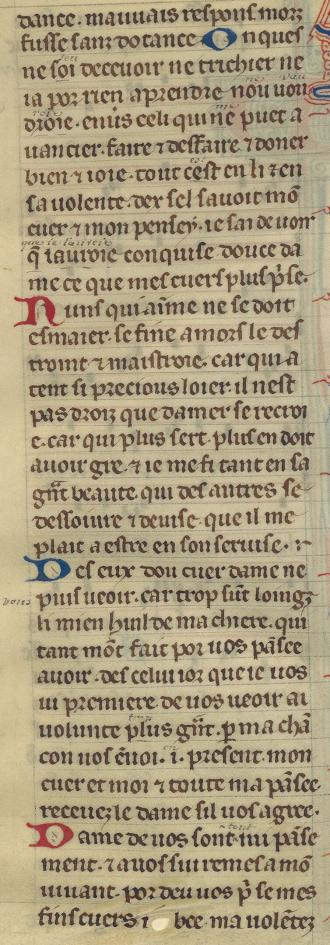 dance. mauuais respons morz
fusse sanz dotance. Onques
ne soi deceuoir ne trichier ne
ia por rien aprendre nou uou
droie. enuis celi qui ne puet a
uancier. faire ⁊ deffaire ⁊ doner
bien ⁊ ioie. tout cest en li ⁊ en
sa uolente. dex sel sauoit mō
cuer ⁊ mon penser. ie sai de uoir
q̄ iauroie conquise douce da
me ce que mes cuers plus p̄se.
Nuns qui aime ne se doit
esmaier. se fine amors le des
troint ⁊ maistroie. car qui a
tent si precious loier. il nest
pas droiz que damer se recroi
e. car qui plus sert. plus en doit
auoir gre. ⁊ ie me fi tant en sa
gr̄t beaute. qui des autres se
dessoiure ⁊ deuise. que il me
plait a estre en son seruise. ⁊
Des eux dou cuer dame ne
puis ueoir. car trop sūt loingz
li mien huil de ma chiere. qui
tant mōt fait por uos pāsee
auoir. des celui ior que ie uos
ui premiere. de uos ueoir ai
uolunte plus gr̄t. p̄ ma chā
con uos ēuoi. i. present. mon
cuer et moi ⁊ toute ma pāsee.
receuez le dame sil uos agree.
Dame de uos sont mi pāse
ment. ⁊ a uos sui remes a mō
uiuant. por deu uos p̄ se mes
fins cuers bee. ma uolētez